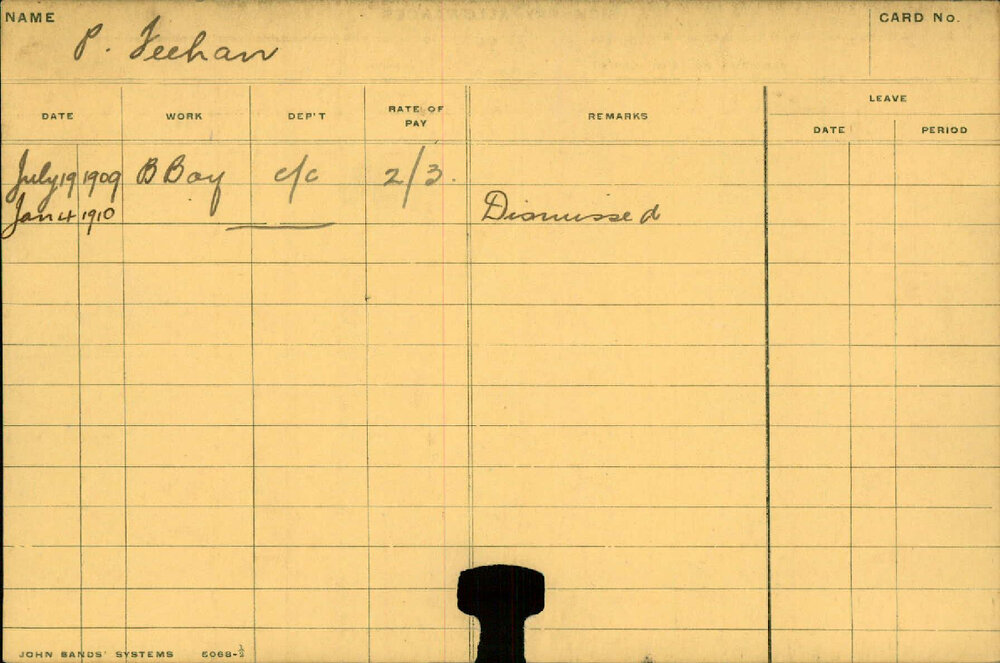 NAME CARD No.
P. Feehan
DATE WORK DEP'T RATE OF PAY REMARKS LEAVE
DATE PERIOD
July 19 1909 B Boy c/c 2/3.
Jan 4 1910 Dismissed
JOHN SANDS' SYSTEMS 5068-½